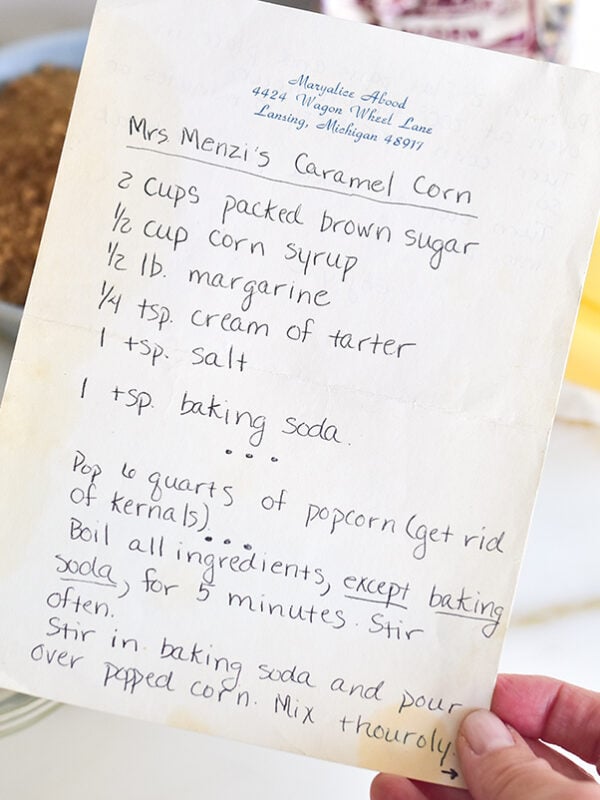 Maryalice Abood
4424 Wagon Wheel Lane
Lansing, Michigan 48917
Mrs. Menzi's Caramel Corn
2 cups packed brown sugar
1/2 cup corn syrup
1/2 lb. margarine
1/4 tsp. cream of tarter
1 tsp. salt
1 tsp. baking soda.
• • •
Pop 6 quarts of popcorn (get rid
of kernals)
• • •
Boil all ingredients, except baking
soda, for 5 minutes. Stir
often.
Stir in baking soda and pour
over popped corn. Mix thouroly.
→